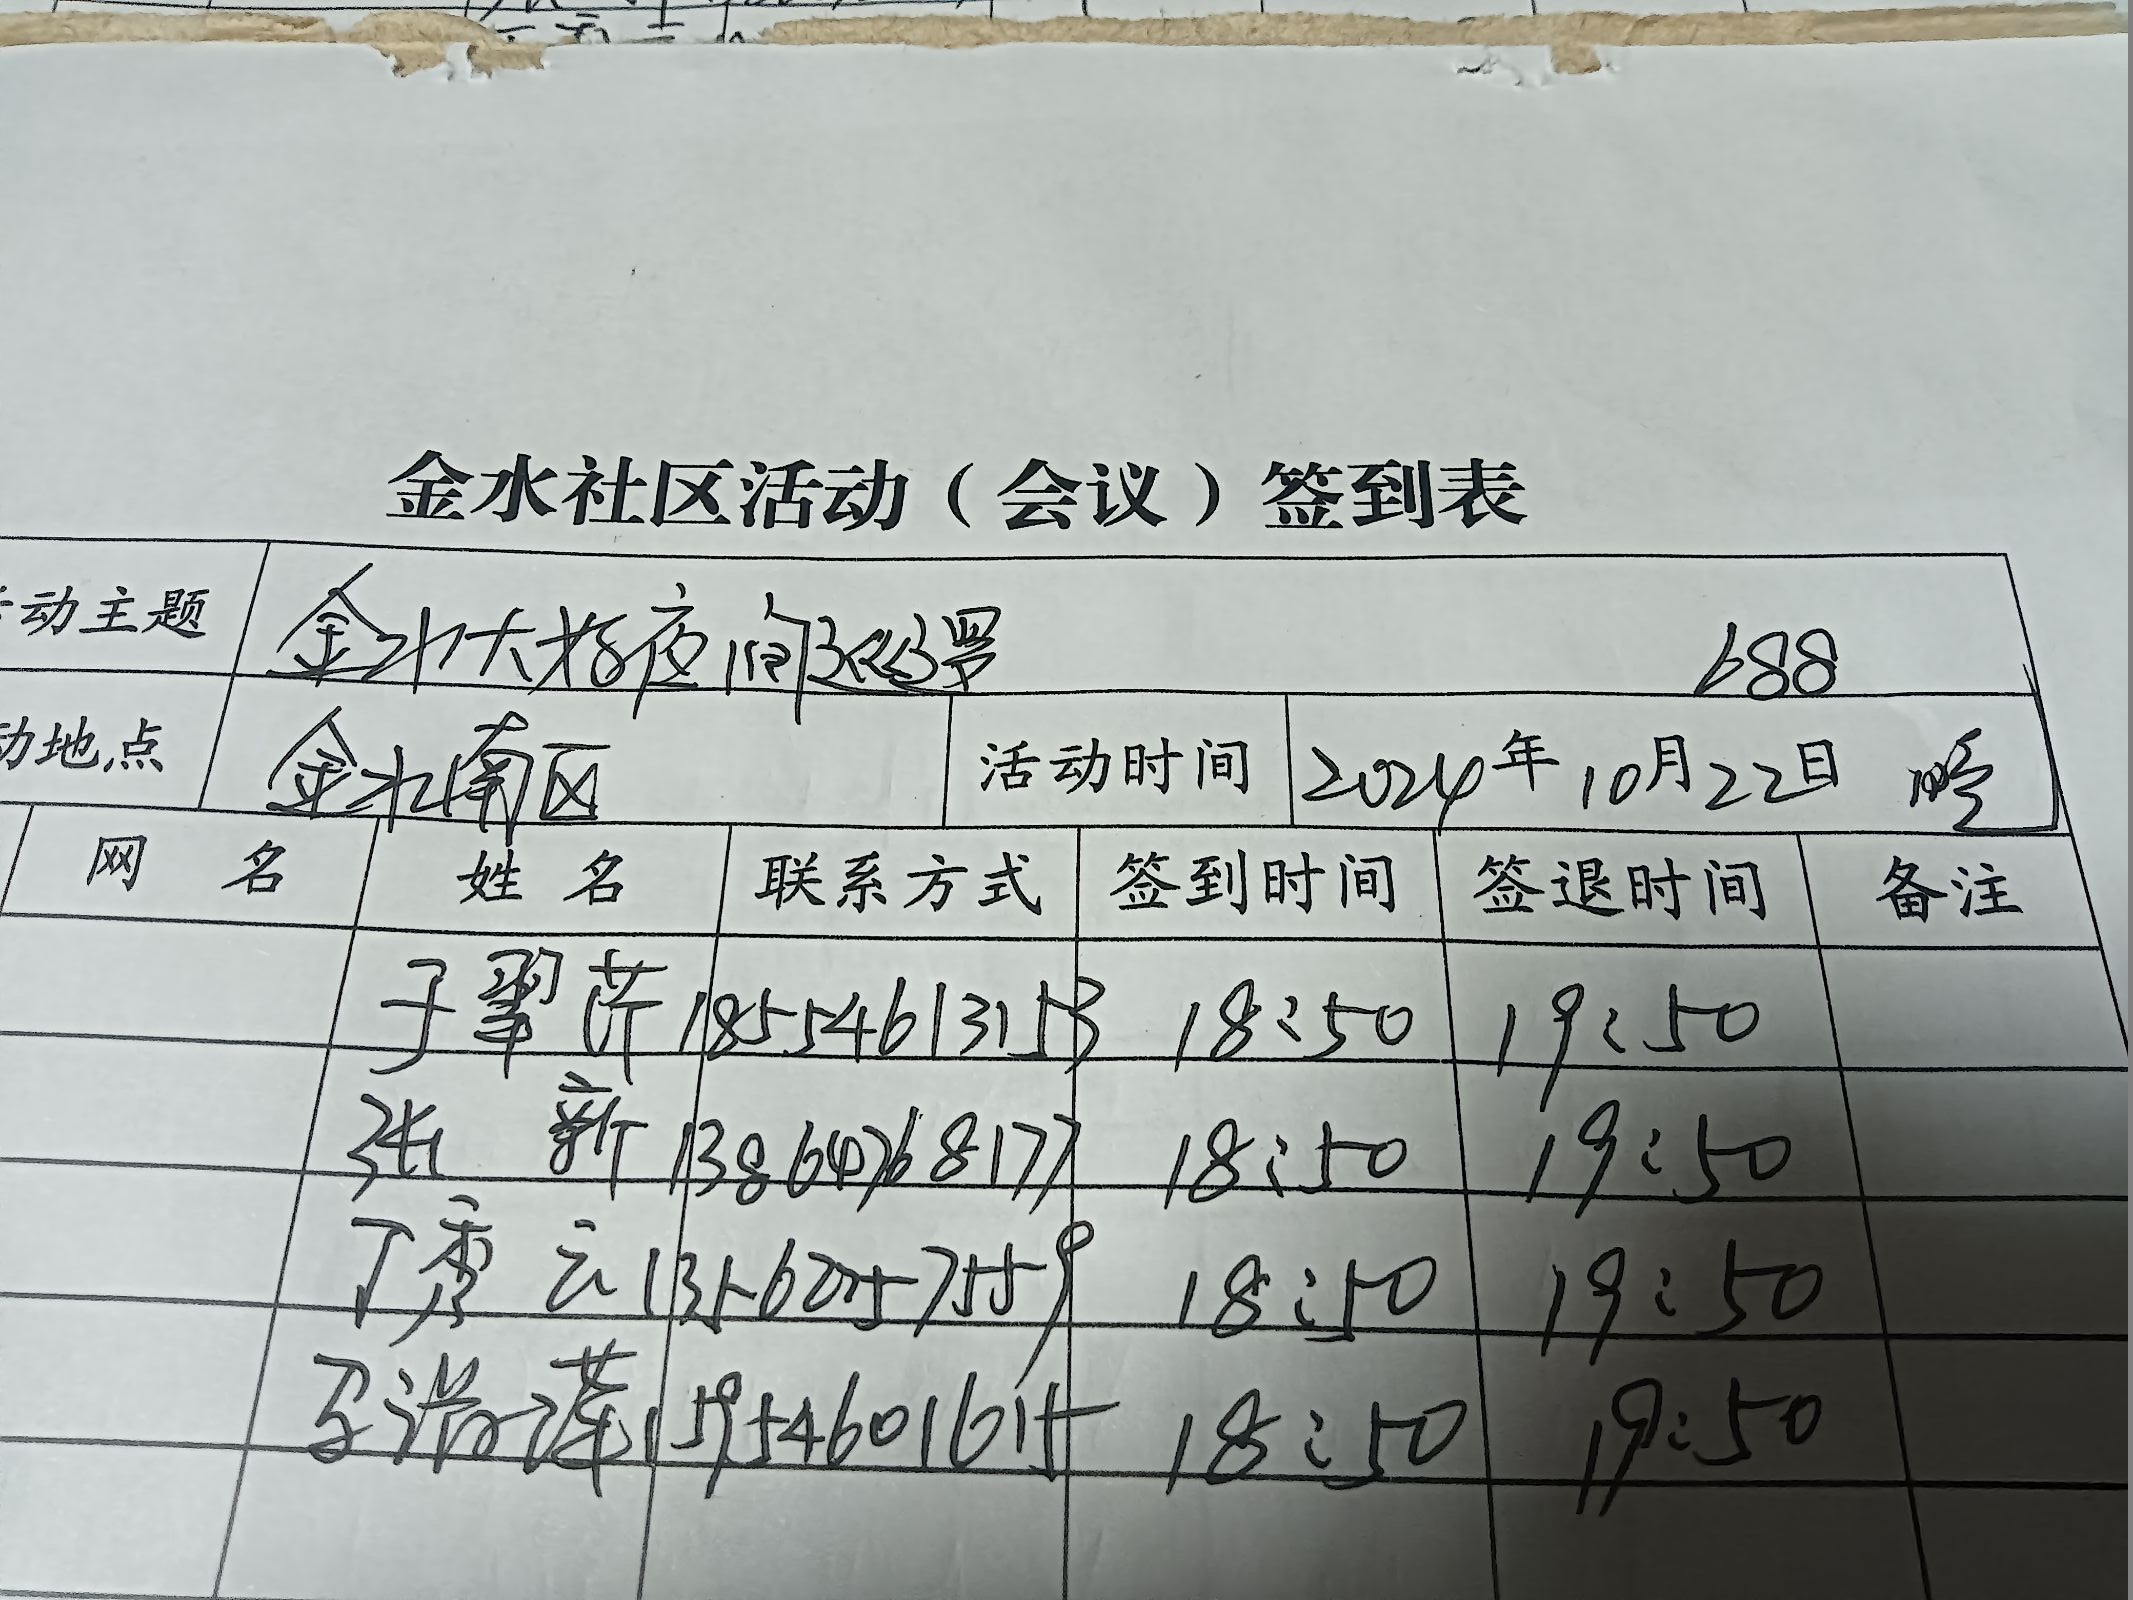 金水社区活动（会议）签到表
动主题 金水大楼夜间巡逻 688
动地点 金水南区 活动时间 2024年10月22日 晚
网 名 姓 名 联系方式 签到时间 签退时间 备注
于翠芹 18554613153 18:50 19:50
张 新 13864768177 18:50 19:50
丁秀云 13562757559 18:50 19:50
莲 15954601615 18:50 19:50